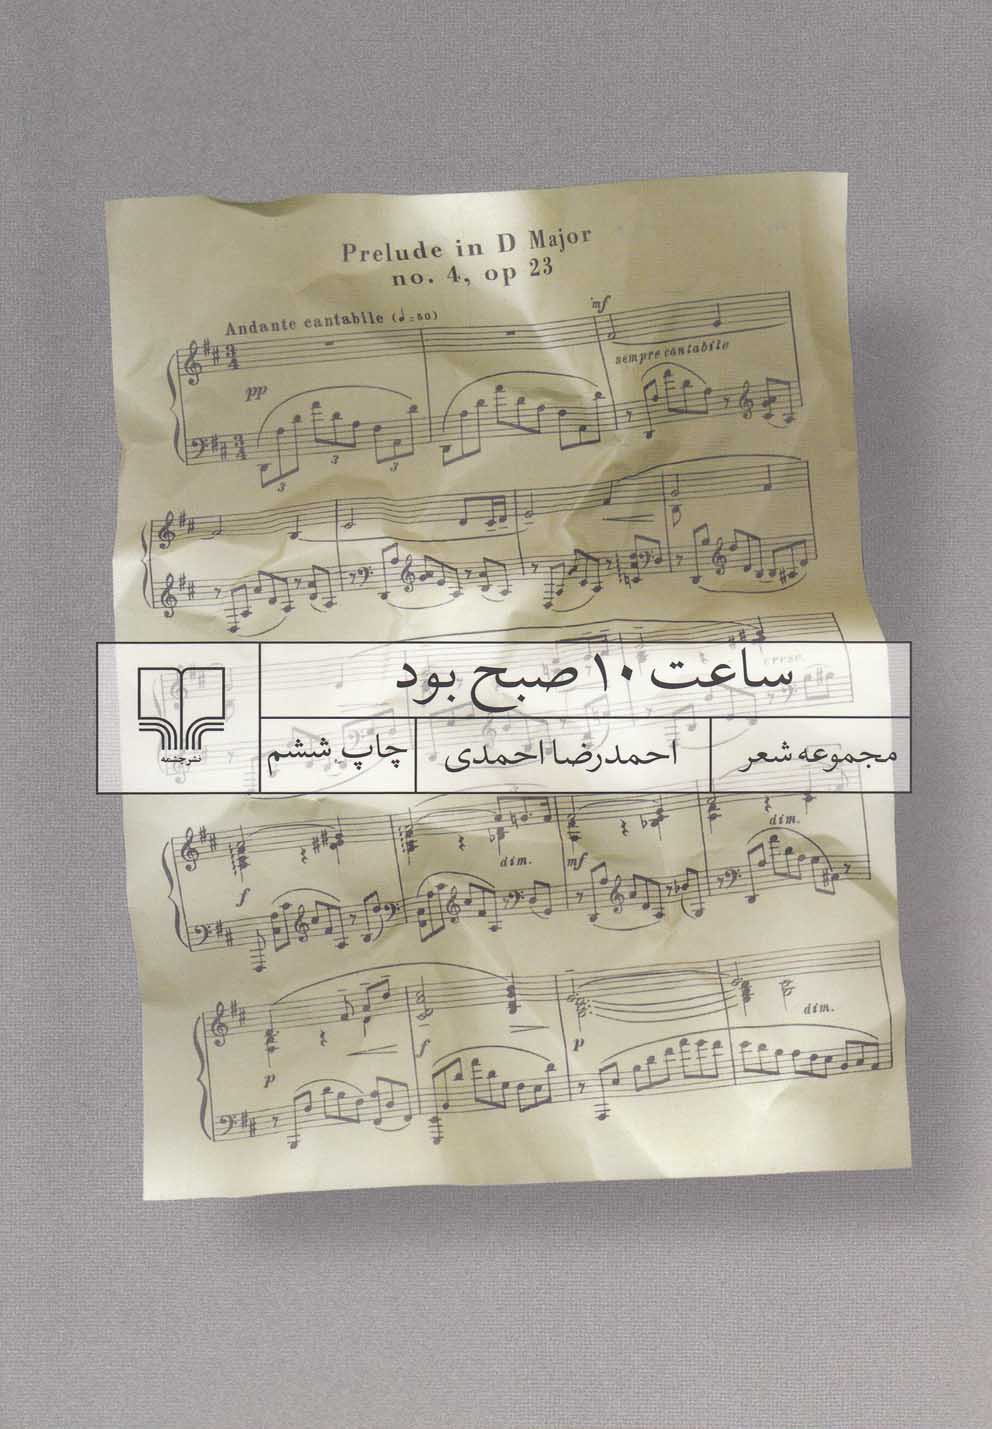 Prelude in D Major
no. 4, op 23
Andante cantabile (♩=50)
mf
sempre cantabile
pp
3
4
3
4
3
3
3
cresc.
ساعت ۱۰ صبح بود
مجموعه شعر
احمدرضا احمدی
چاپ ششم
نشرچشمه
dim.
dim.
mf
f
dim.
p
f
p